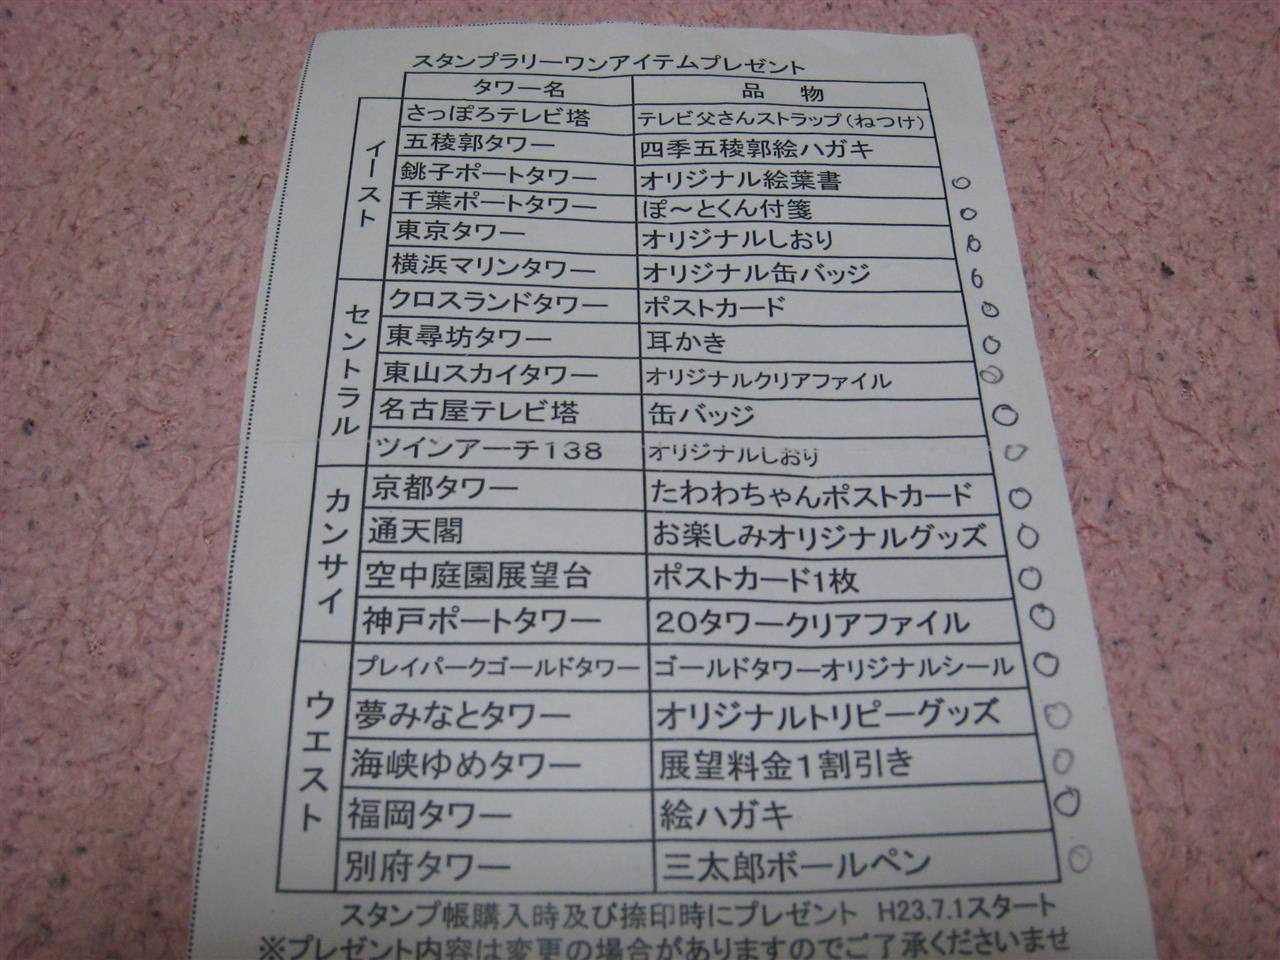 スタンプラリーワンアイテムプレゼント
タワー名 品 物
イースト
さっぽろテレビ塔 テレビ父さんストラップ(ねつけ)
五稜郭タワー 四季五稜郭絵ハガキ
銚子ポートタワー オリジナル絵葉書
千葉ポートタワー ぽ～とくん付箋
東京タワー オリジナルしおり
横浜マリンタワー オリジナル缶バッジ
セントラル
クロスランドタワー ポストカード
東尋坊タワー 耳かき
東山スカイタワー オリジナルクリアファイル
名古屋テレビ塔 缶バッジ
ツインアーチ138 オリジナルしおり
カンサイ
京都タワー たわわちゃんポストカード
通天閣 お楽しみオリジナルグッズ
空中庭園展望台 ポストカード1枚
神戸ポートタワー 20タワークリアファイル
ウエスト
プレイパークゴールドタワー ゴールドタワーオリジナルシール
夢みなとタワー オリジナルトリピーグッズ
海峡ゆめタワー 展望料金1割引き
福岡タワー 絵ハガキ
別府タワー 三太郎ボールペン
スタンプ帳購入時及び捺印時にプレゼント H23.7.1スタート
※プレゼント内容は変更の場合がありますのでご了承くださいませ